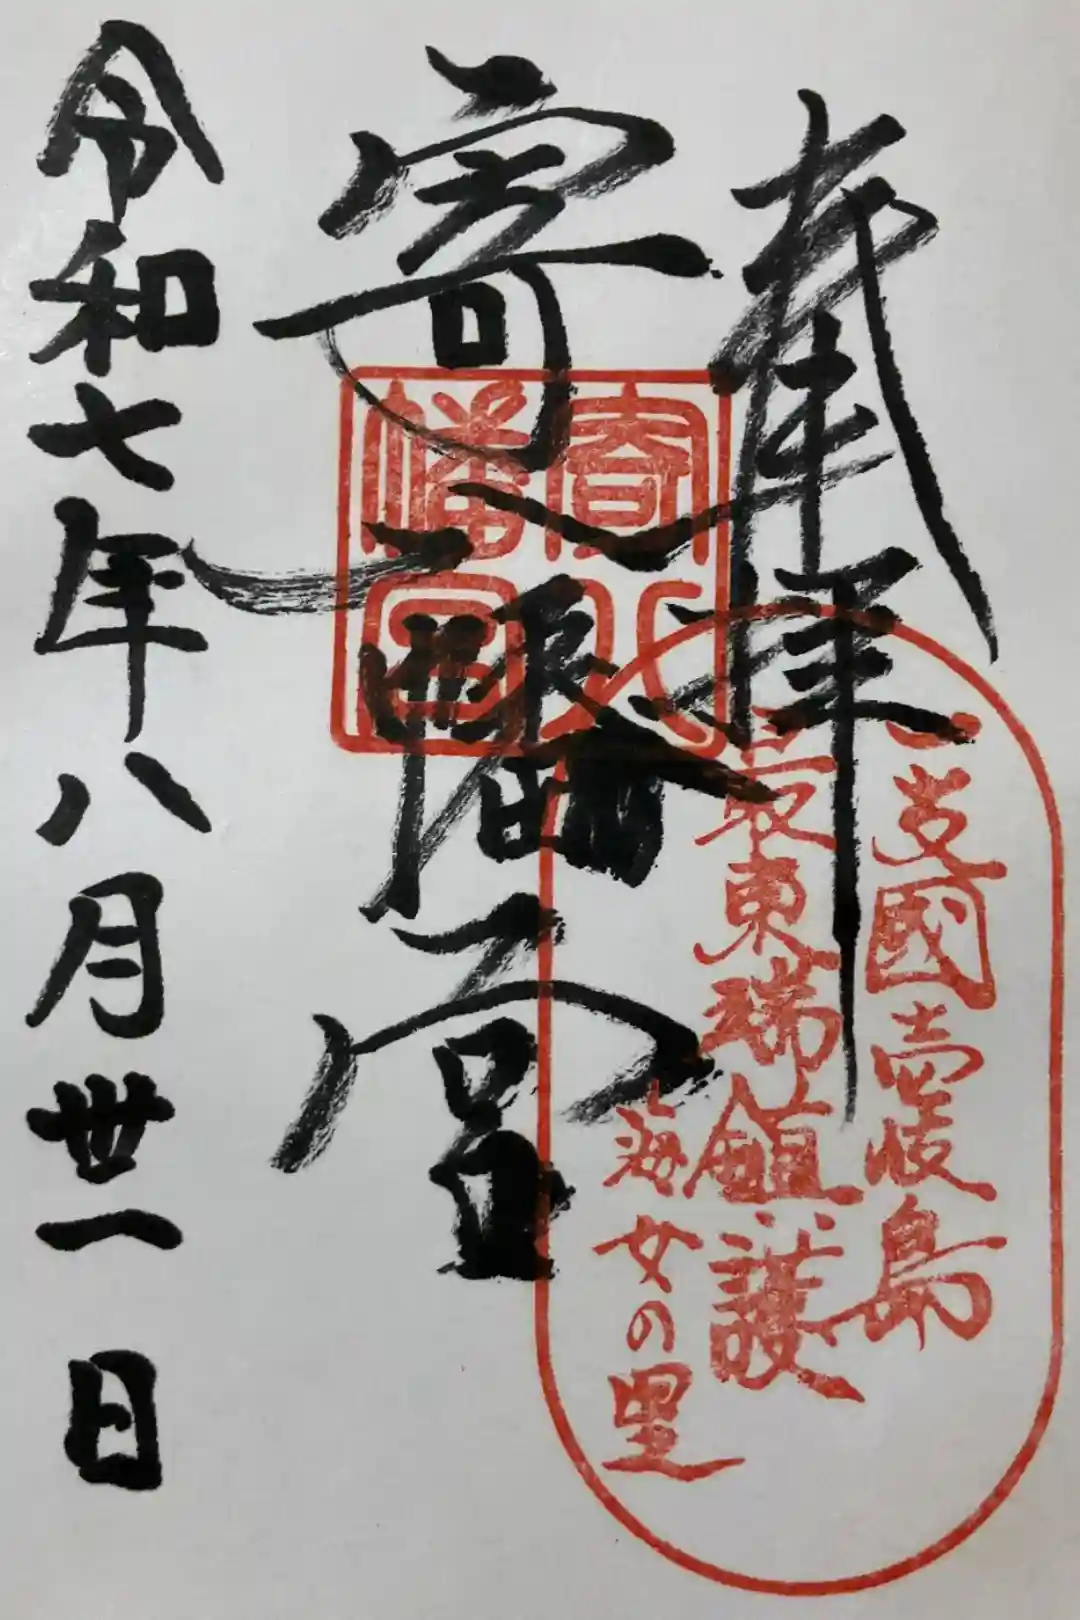 奉拝
一支國壹岐島
最東端鎮護
海女の里
寄八幡宮
寄八
幡宮
令和七年八月卅一日